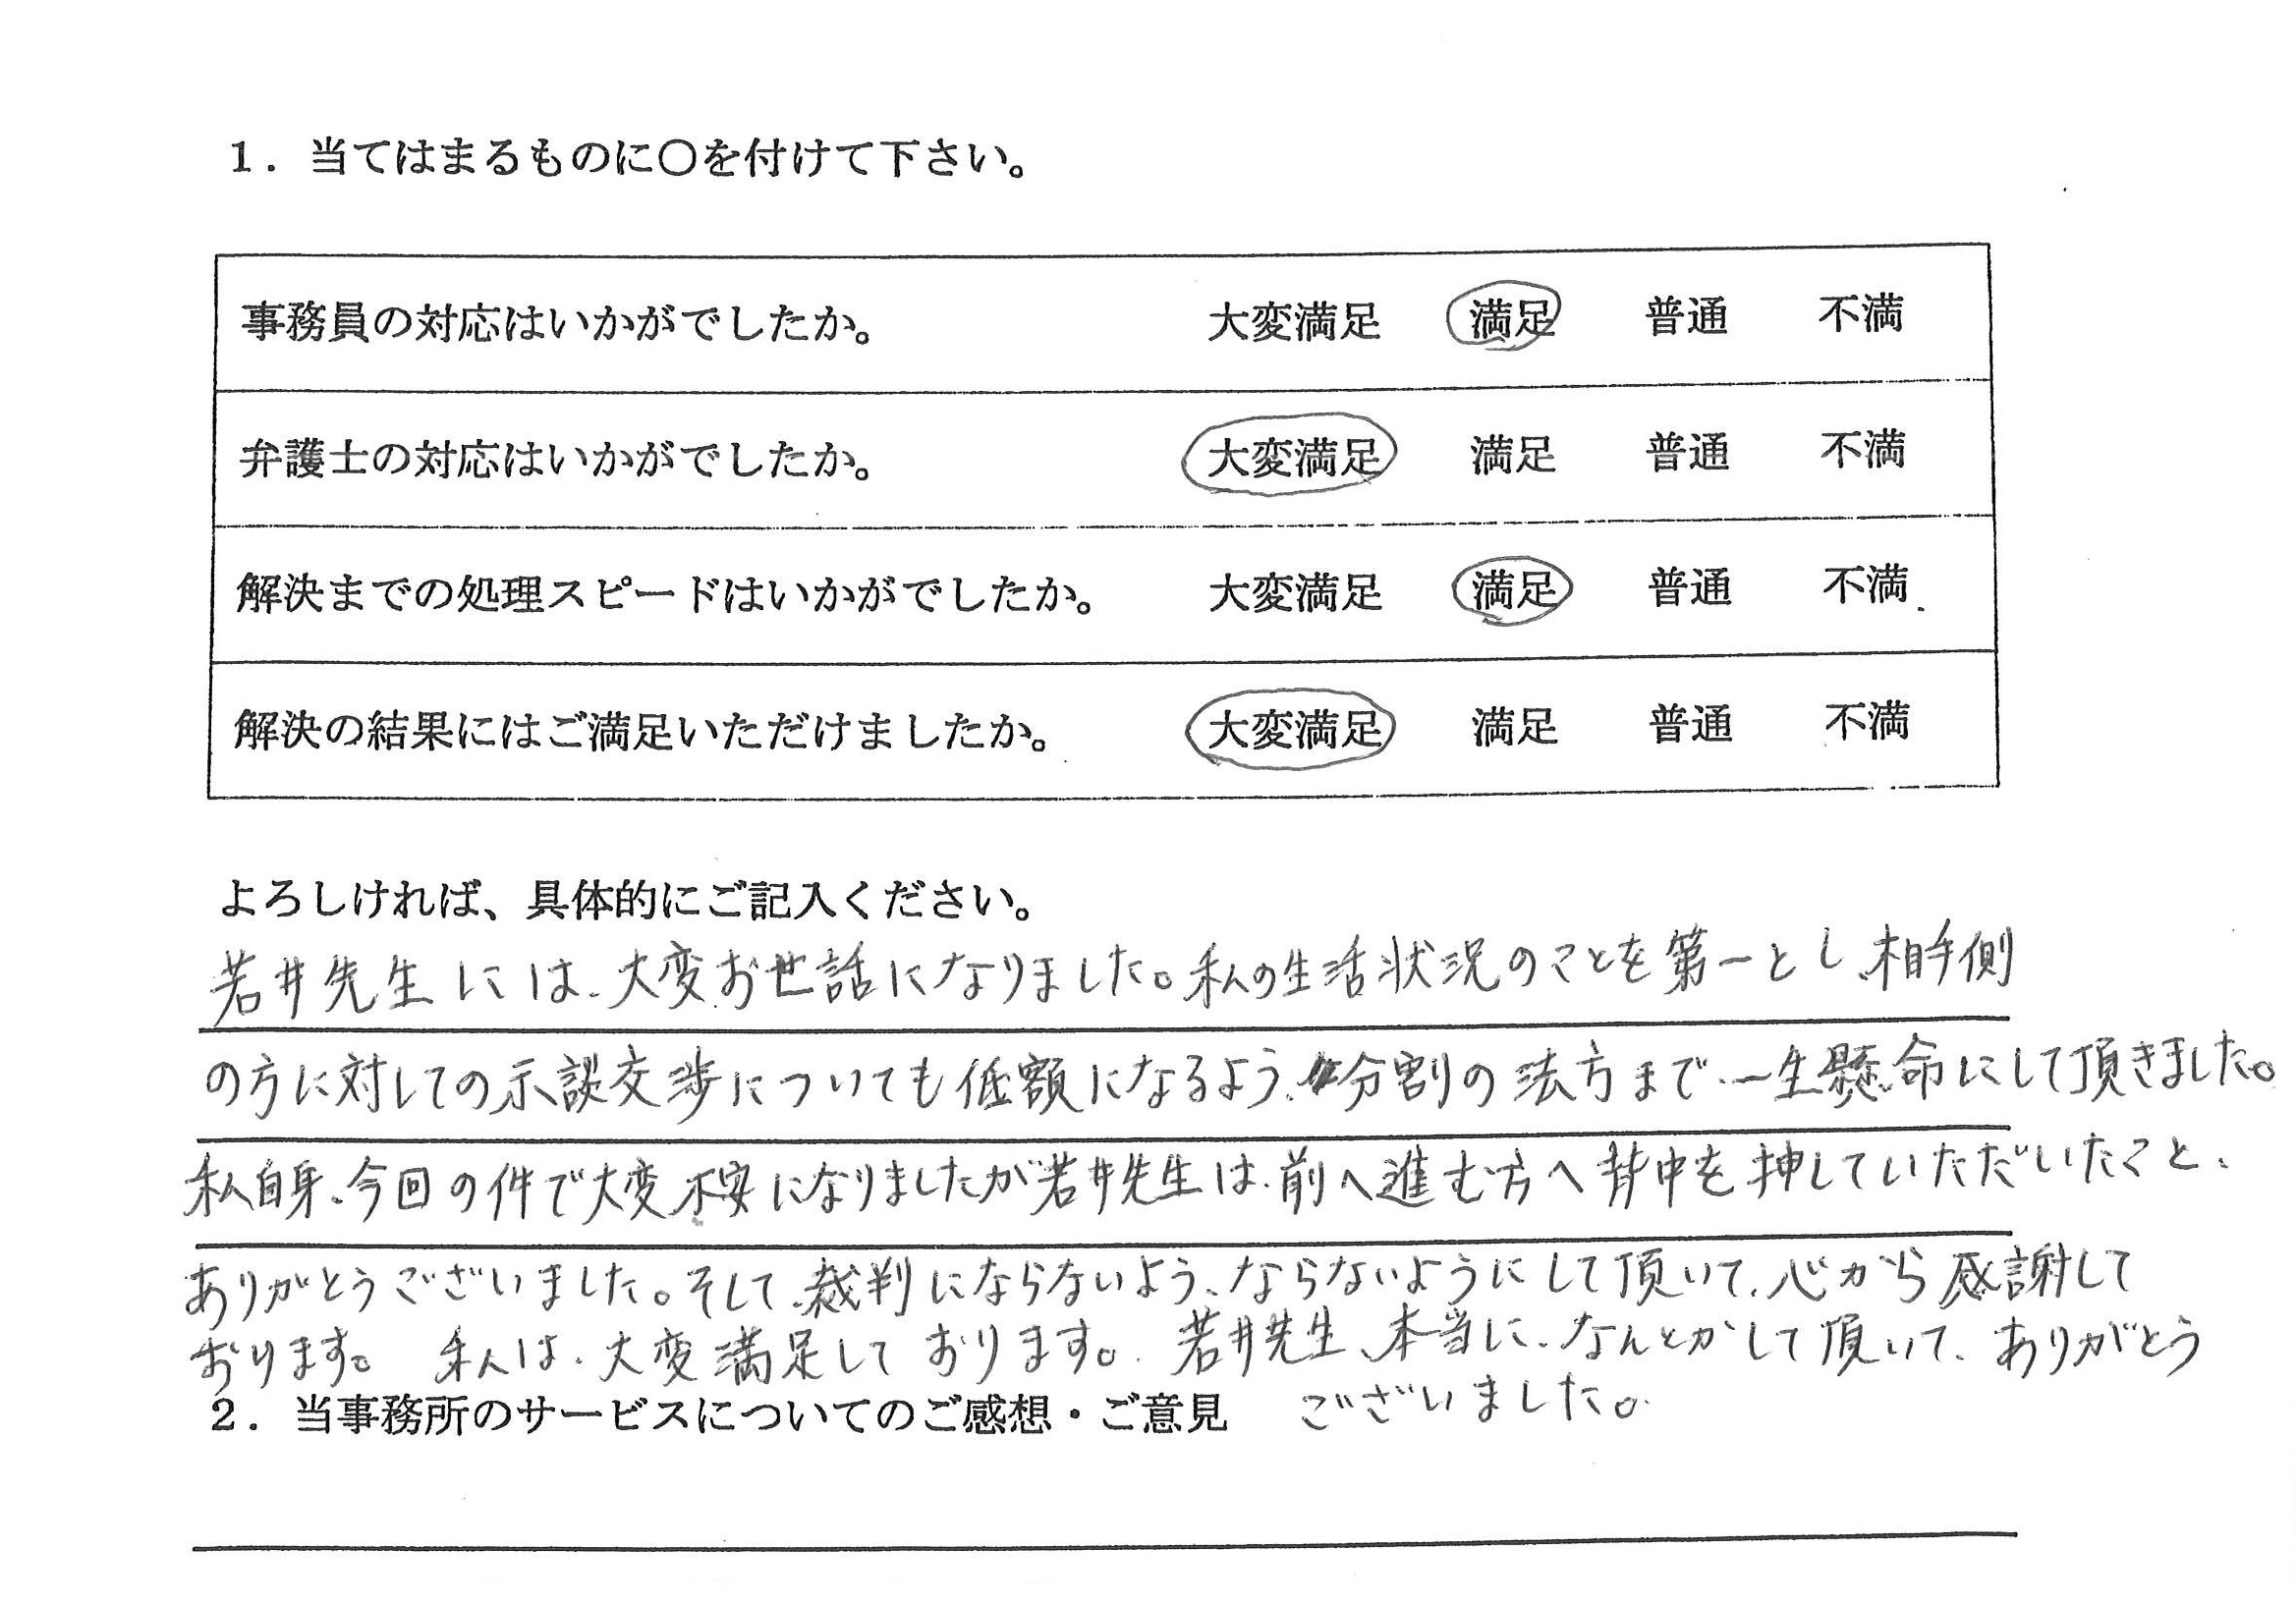 1．当てはまるものに〇を付けて下さい。
事務員の対応はいかがでしたか。 大変満足 満足 普通 不満
弁護士の対応はいかがでしたか。 大変満足 満足 普通 不満
解決までの処理スピードはいかがでしたか。 大変満足 満足 普通 不満
解決の結果にはご満足いただけましたか。 大変満足 満足 普通 不満
よろしければ、具体的にご記入ください。
若井先生には、大変お世話になりました。私の生活状況のことを第一とし、相手側
の方に対しての示談交渉についても低額になるよう、分割の法方まで、一生懸命にして頂きました。
私自身、今回の件で大変不安になりましたが若井先生は、前へ進む方へ背中を押していただいたこと、
ありがとうございました。そして、裁判にならないよう、ならないようにして頂いて、心から感謝して
おります。 私は、大変満足しております。 若井先生、本当に、なんとかして頂いて、ありがとう
ございました。
2．当事務所のサービスについてのご感想・ご意見